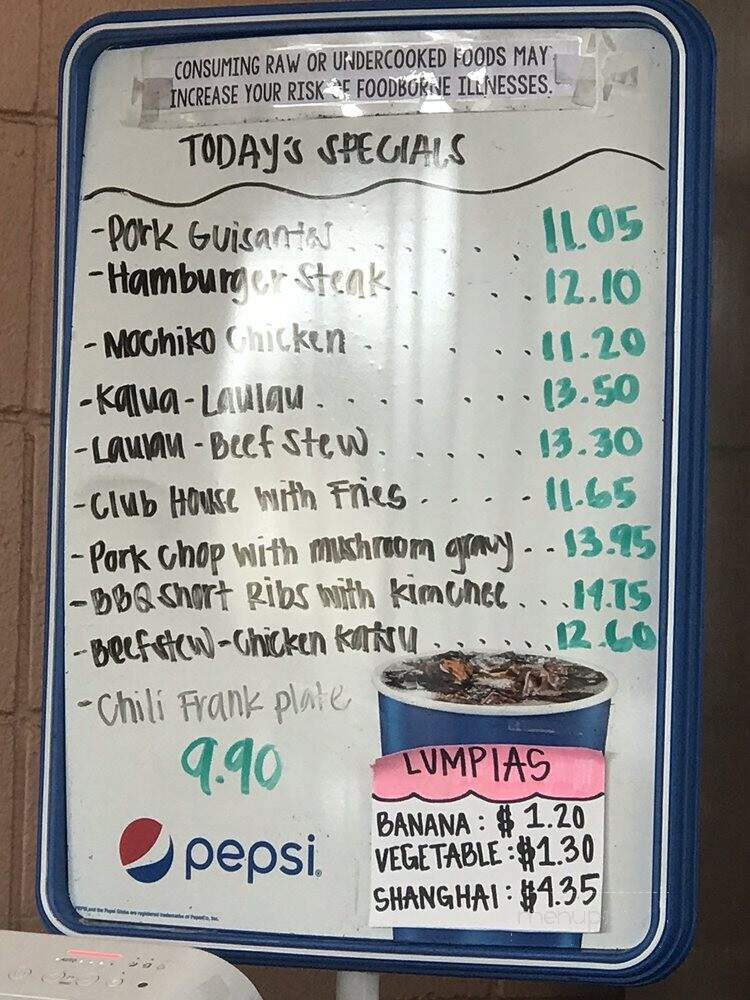 CONSUMING RAW OR UNDERCOOKED FOODS MAY
INCREASE YOUR RISK OF FOODBORNE ILLNESSES.
TODAY'S SPECIALS
- Pork Guisantes . . . . 11.05
- Hamburger Steak . . . . 12.10
- Mochiko Chicken . . . . . 11.20
- Kalua - Laulau . . . . . . 13.50
- Laulau - Beef Stew . . . . . 13.30
- Club House with Fries . . . - 11.65
- Pork Chop with mushroom gravy - - - 13.95
- BBQ Short Ribs with kimchee . . . . 14.75
- Beef stew - Chicken Katsu . . . . . . 12.60
- Chili Frank plate
9.90
LUMPIAS
BANANA : $ 1.20
VEGETABLE : $1.30
SHANGHAI : $4.35
pepsi
menupix